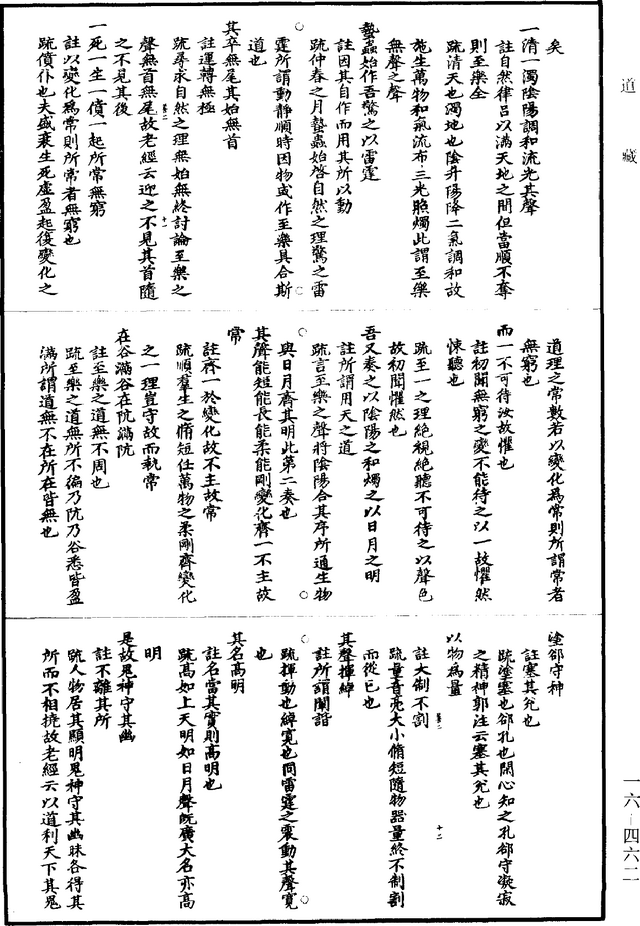 道藏
矣
一清一濁陰陽調和流光其聲
註自然律呂以滿天地之間但當順不奪
則至樂全
疏清天也濁地也陰升陽降二氣調和故
施生萬物和氣流布三光照燭此謂至樂
無聲之聲
蟄蟲始作吾驚之以雷霆
註因其自作而用其所以動
疏仲春之月蟄蟲始啓自然之理驚之雷
霆所謂動靜順時因物或作至樂具合斯
道也
其卒無尾其始無首
註運轉無極
疏尋求自然之理無始無終討論至樂之
聲無首無尾故老經云迎之不見其首隨
之不見其後
一死一生一僨一起所常無窮
註以變化為常則所常者無窮也
疏僨仆也夫盛衰生死虛盈起復變化之
道理之常數若以變化為常則所謂常者
無窮也
而一不可待汝故懼也
註初聞無窮之變不能待之以一故懼然
悚聽也
疏至一之理絕視絕聽不可待之以聲色
故初聞懼然也
吾又奏之以陰陽之和燭之以日月之明
註所謂用天之道
疏言至樂之聲將陰陽合其序所通生物
與日月齊其明此第二奏也
其聲能短能長能柔能剛變化齊一不主故
常
註齊一於變化故不主故常
疏順羣生之脩短任萬物之柔剛齊變化
之一理豈守故而執常
在谷滿谷在阬滿阬
註至樂之道無不周也
疏至樂之道無所不徧乃阬乃谷悉皆盈
滿所謂道無不在所在皆無也
塗郤守神
註塞其兌也
疏塗塞也郤孔也閉心知之孔郤守凝寂
之精神郭注云塞其兌也
以物為量
註大制不割
疏量音亮大小脩短隨物器量終不制割
而從己也
其聲揮綽
註所謂闡諧
疏揮動也綽寬也同雷霆之震動其聲寬
也
其名高明
註名當其實則高明也
疏高如上天明如日月聲既廣大名亦高
明
是故鬼神守其幽
註不離其所
疏人物居其顯明鬼神守其幽昧各得其
所而不相撓故老經云以道利天下其鬼
十一
十二
一六–四六二